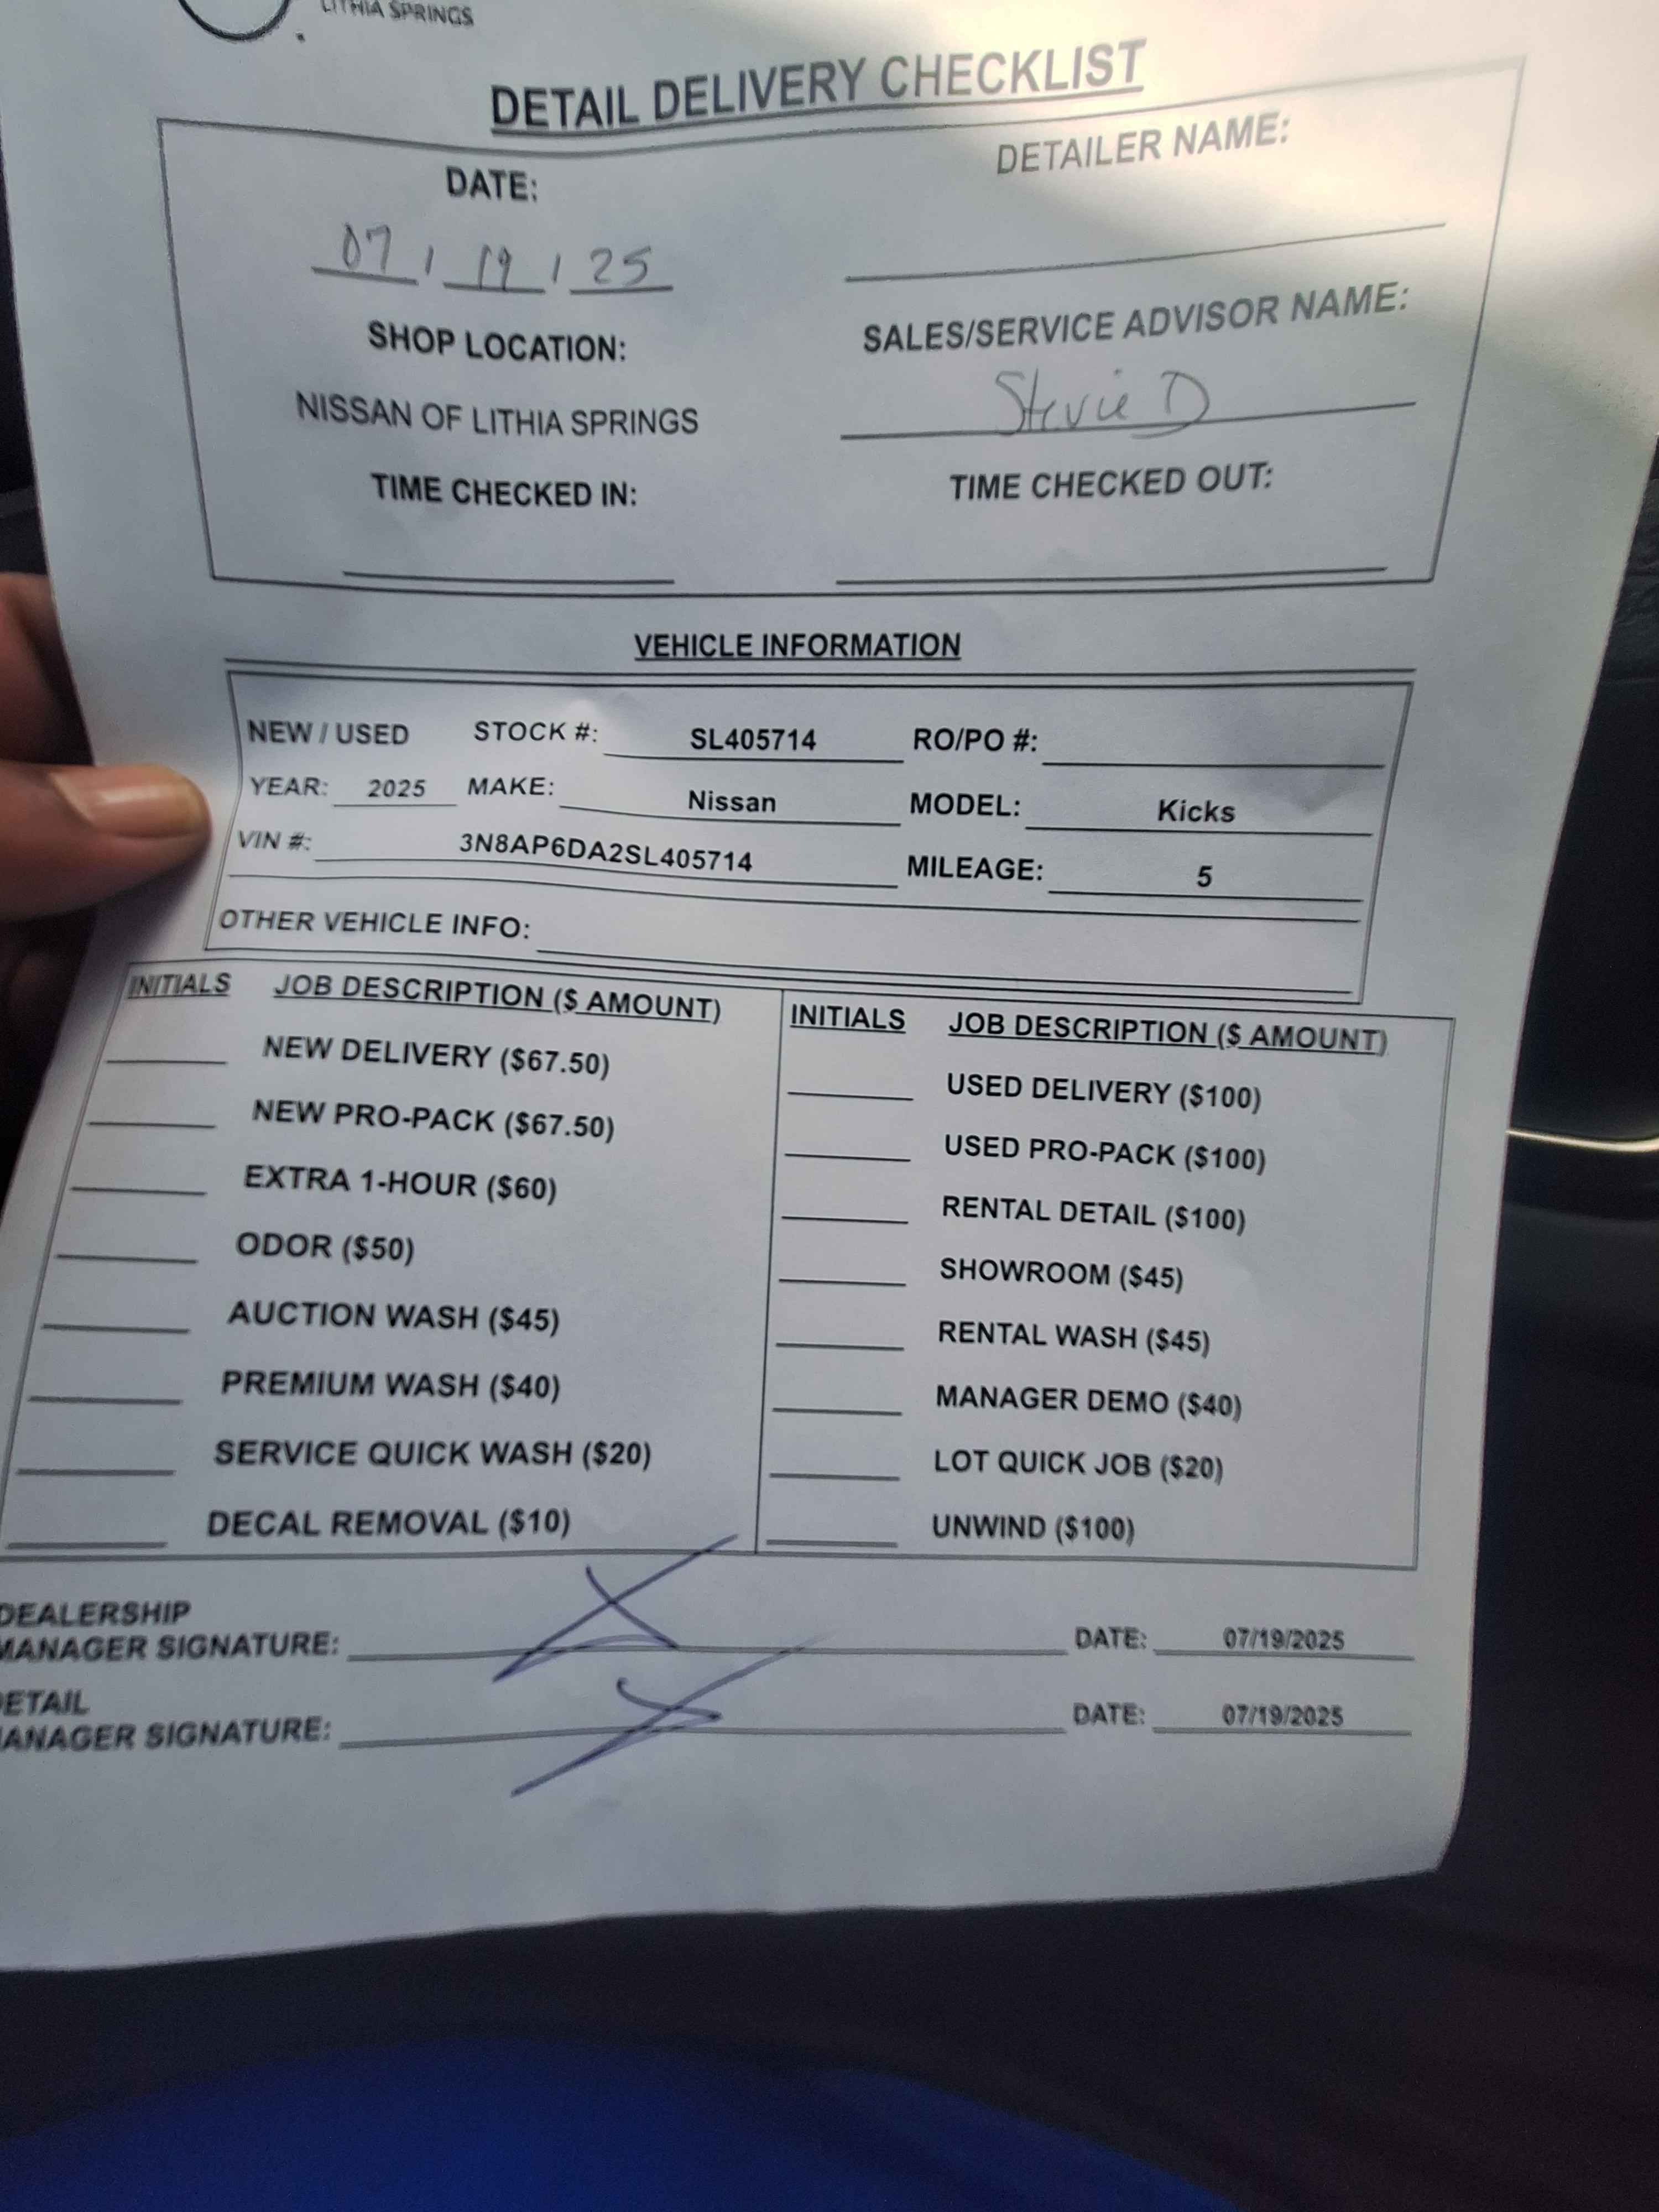 LITHIA SPRINGS
DETAIL DELIVERY CHECKLIST
DATE: DETAILER NAME:
07 / 19 / 25
SHOP LOCATION: SALES/SERVICE ADVISOR NAME:
NISSAN OF LITHIA SPRINGS Stevie D
TIME CHECKED IN: TIME CHECKED OUT:
VEHICLE INFORMATION
NEW / USED STOCK #: SL405714 RO/PO #:
YEAR: 2025 MAKE: Nissan MODEL: Kicks
VIN #: 3N8AP6DA2SL405714 MILEAGE: 5
OTHER VEHICLE INFO:
INITIALS JOB DESCRIPTION ($ AMOUNT) INITIALS JOB DESCRIPTION ($ AMOUNT)
NEW DELIVERY ($67.50) USED DELIVERY ($100)
NEW PRO-PACK ($67.50) USED PRO-PACK ($100)
EXTRA 1-HOUR ($60) RENTAL DETAIL ($100)
ODOR ($50) SHOWROOM ($45)
AUCTION WASH ($45) RENTAL WASH ($45)
PREMIUM WASH ($40) MANAGER DEMO ($40)
SERVICE QUICK WASH ($20) LOT QUICK JOB ($20)
DECAL REMOVAL ($10) UNWIND ($100)
DEALERSHIP
MANAGER SIGNATURE: DATE: 07/19/2025
DETAIL
MANAGER SIGNATURE: DATE: 07/19/2025